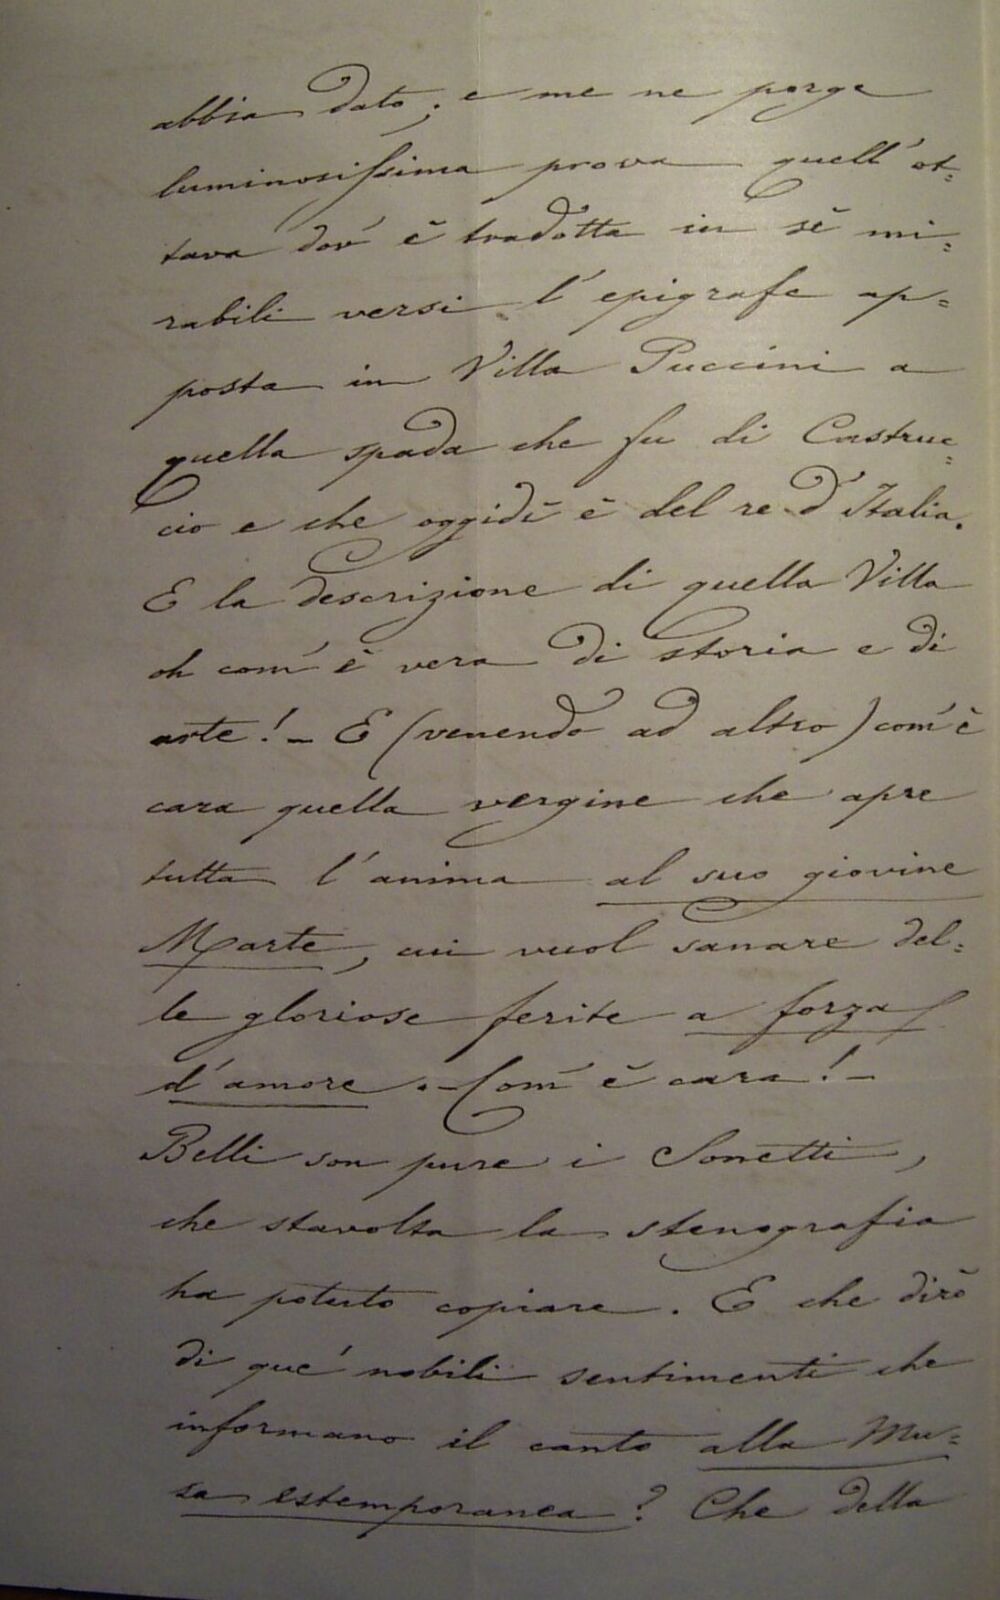 abbia dato; e me ne porge
luminosissima prova quell'ot=
tava dov'è tradotta in sè mi=
rabili versi l'epigrafe ap=
posta in Villa Puccini a
quella spada che fu di Castruc=
cio e che oggidì è del re d'Italia.
E la descrizione di quella Villa
oh com'è vera di storia e di
arte! – E (venendo ad altro) com'è
cara quella vergine che apre
tutta l'anima al suo giovine
Marte, cui vuol sanare del=
le gloriose ferite a forza
d'amore. – Com'è cara! –
Belli son pure i Sonetti,
che stavolta la stenografia
ha potuto copiare. E che dirò
di que' nobili sentimenti che
informano il canto alla Mu=
sa estemporanea? Che della